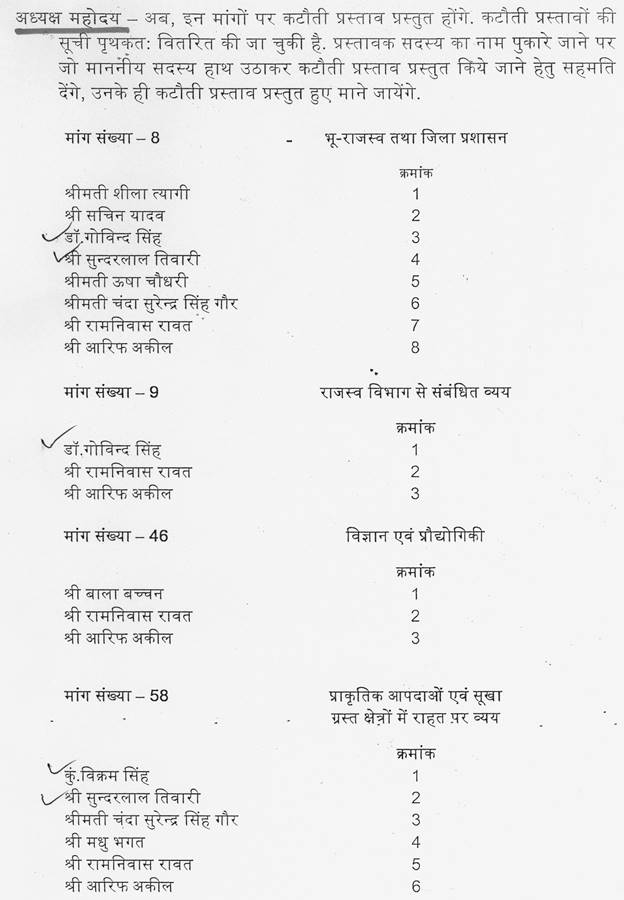 अध्यक्ष महोदय – अब, इन मांगों पर कटौती प्रस्ताव प्रस्तुत होंगे. कटौती प्रस्तावों की
सूची पृथकत: वितरित की जा चुकी है. प्रस्तावक सदस्य का नाम पुकारे जाने पर
जो माननीय सदस्य हाथ उठाकर कटौती प्रस्ताव प्रस्तुत किये जाने हेतु सहमति
देंगे, उनके ही कटौती प्रस्ताव प्रस्तुत हुए माने जायेंगे.
मांग संख्या – 8 - भू-राजस्व तथा जिला प्रशासन
क्रमांक
श्रीमती शीला त्यागी 1
श्री सचिन यादव 2
डॉ.गोविन्द सिंह 3
श्री सुन्दरलाल तिवारी 4
श्रीमती ऊषा चौधरी 5
श्रीमती चंदा सुरेन्द्र सिंह गौर 6
श्री रामनिवास रावत 7
श्री आरिफ अकील 8
मांग संख्या – 9 राजस्व विभाग से संबंधित व्यय
क्रमांक
डॉ.गोविन्द सिंह 1
श्री रामनिवास रावत 2
श्री आरिफ अकील 3
मांग संख्या – 46 विज्ञान एवं प्रौद्योगिकी
क्रमांक
श्री बाला बच्चन 1
श्री रामनिवास रावत 2
श्री आरिफ अकील 3
मांग संख्या – 58 प्राकृतिक आपदाओं एवं सूखा
ग्रस्त क्षेत्रों में राहत पर व्यय
क्रमांक
कुं.विक्रम सिंह 1
श्री सुन्दरलाल तिवारी 2
श्रीमती चंदा सुरेन्द्र सिंह गौर 3
श्री मधु भगत 4
श्री रामनिवास रावत 5
श्री आरिफ अकील 6